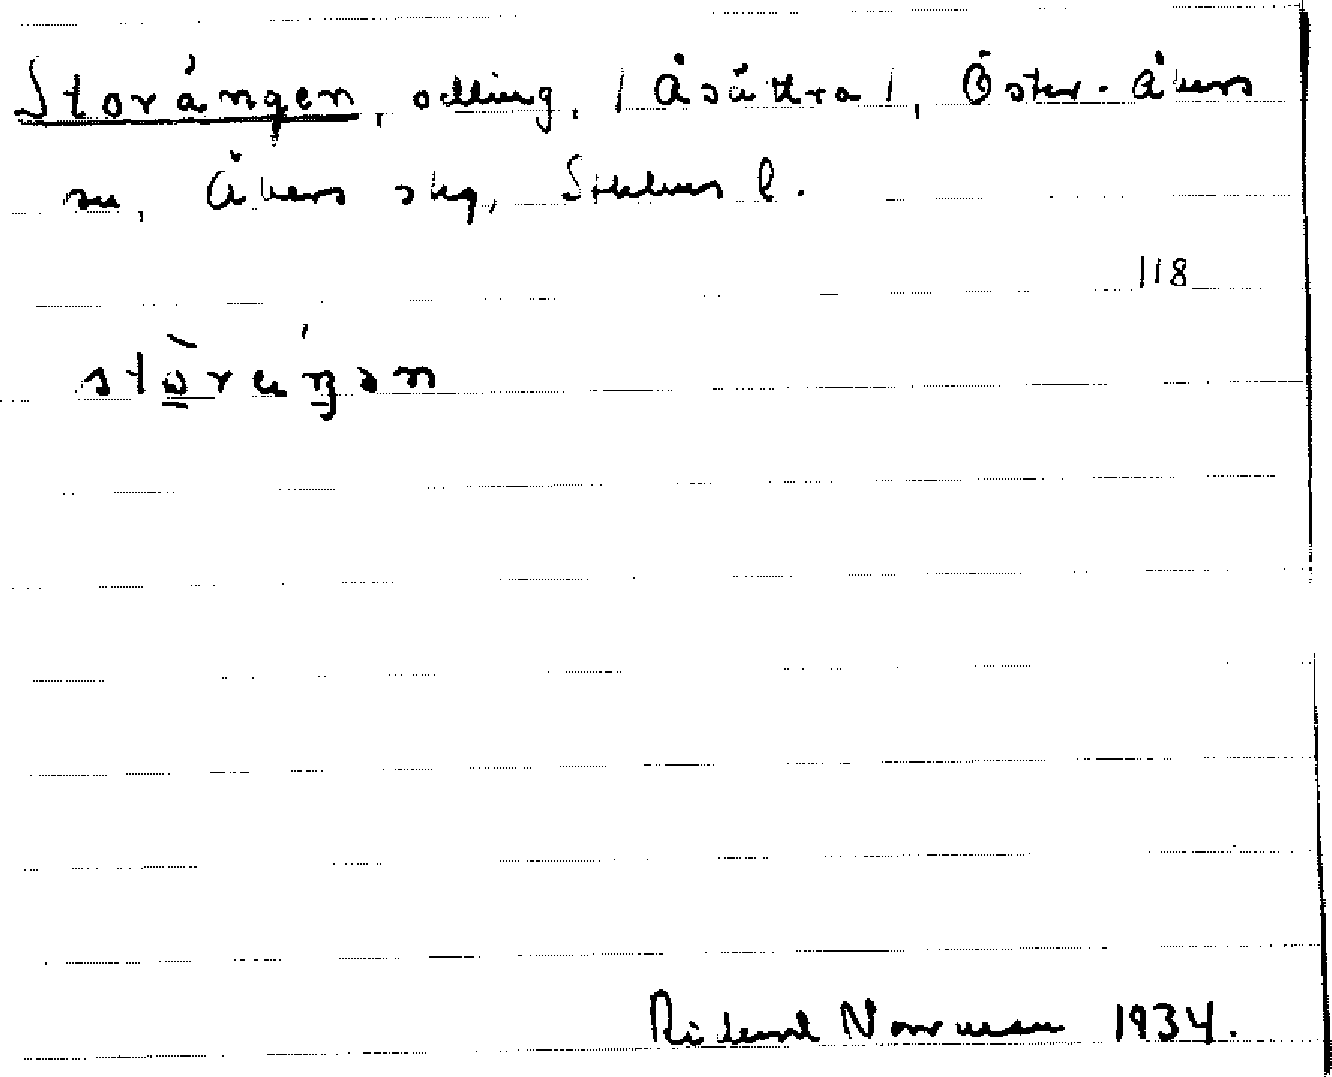 Storängen, odling, / Åsätra /, Öster-Åkers
sn, Åkers skg, Sthlms l.
118
stòräŋən
Rickard Norrman 1934.